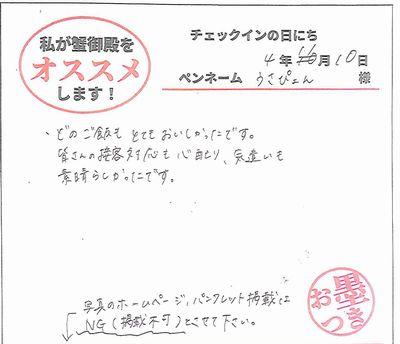 私が蟹御殿を
オススメ
します!
チェックインの日にち
4年10月10日
ペンネーム うさぴょん 様
・どのご飯もとてもおいしかったです。
皆さんの接客対応も心配り、気遣いも
素晴らしかったです。
写真のホームページ、パンフレット掲載は
NG(掲載不可)とさせて下さい。
お墨つき